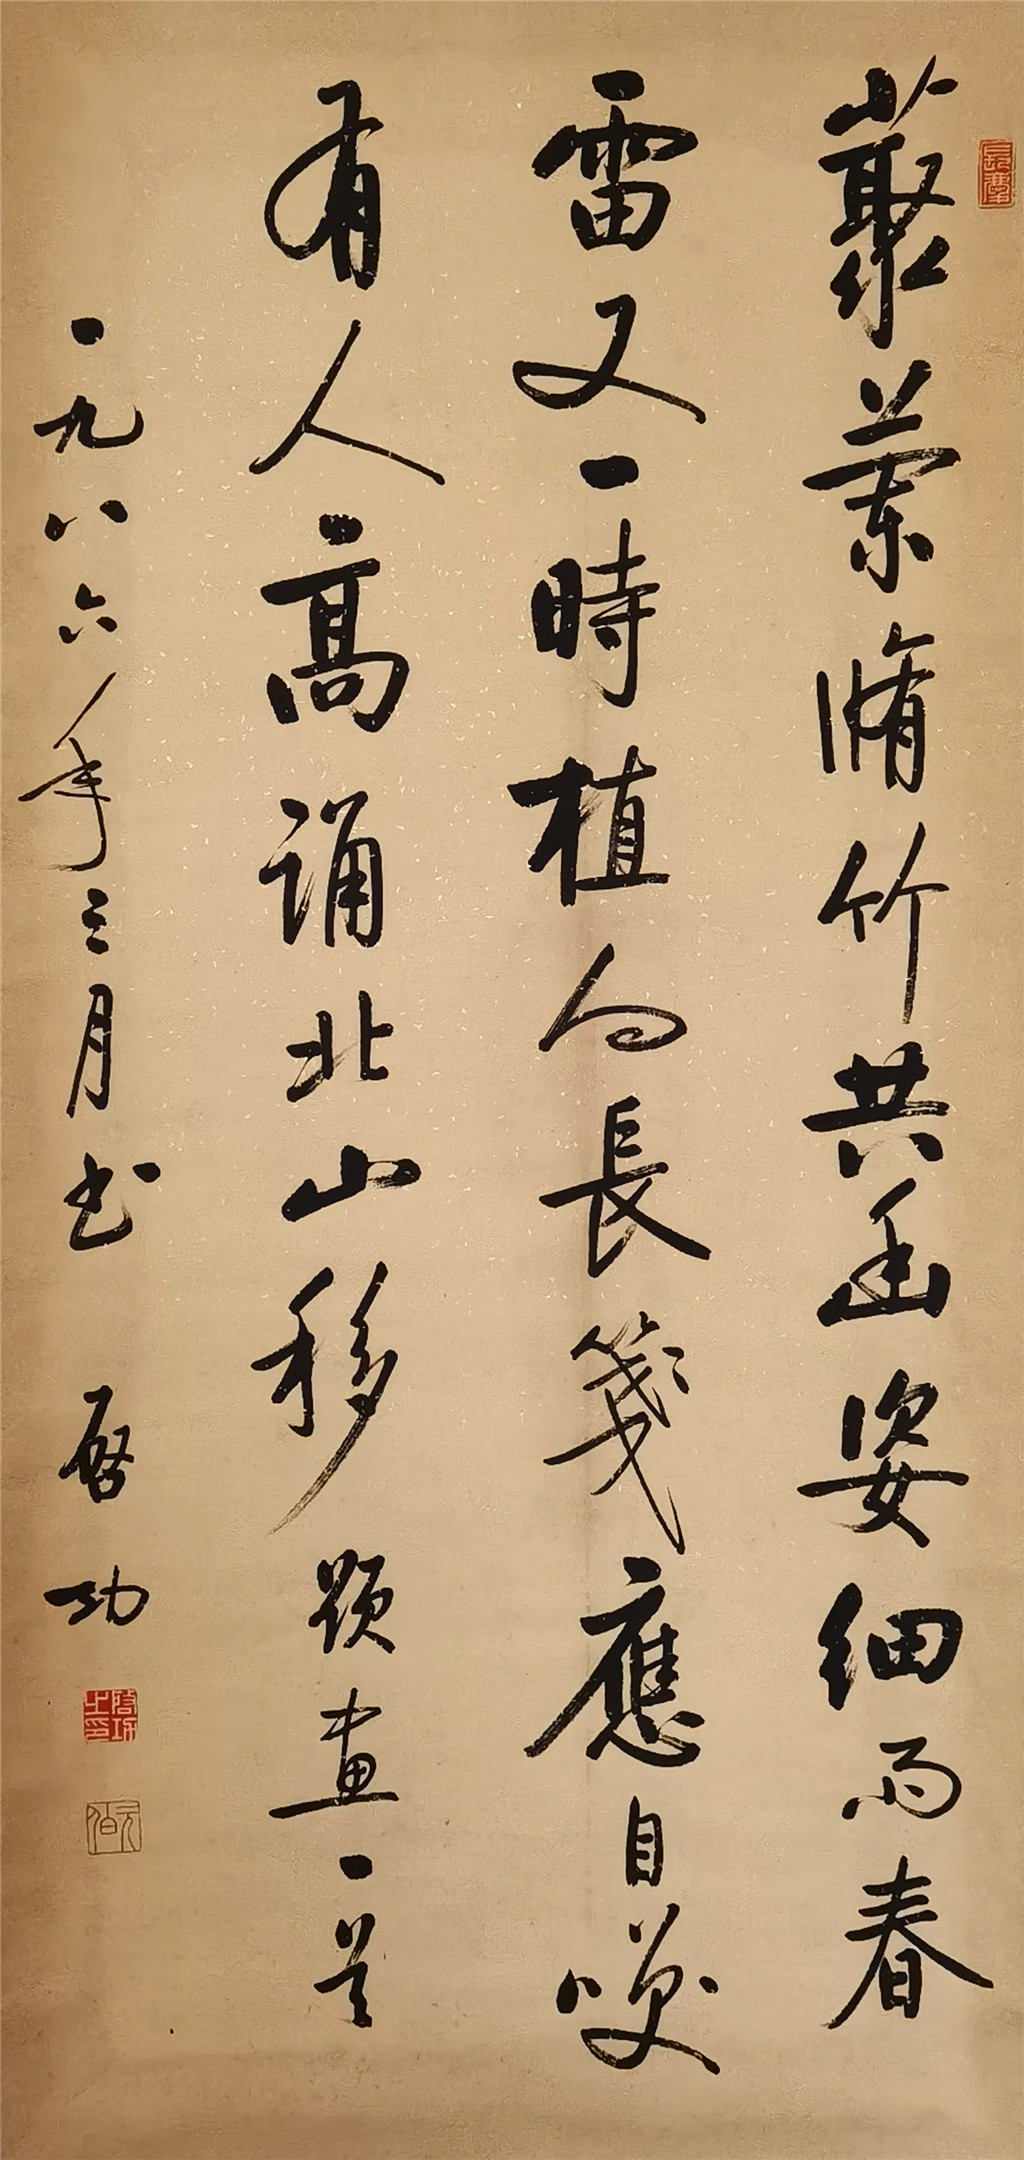 叢蘭脩竹共幽姿細雨春
雷又一時植向長箋應自笑
有人高誦北山移 題畫一首
一九八六年三月書 啓功
啓功之印
元白